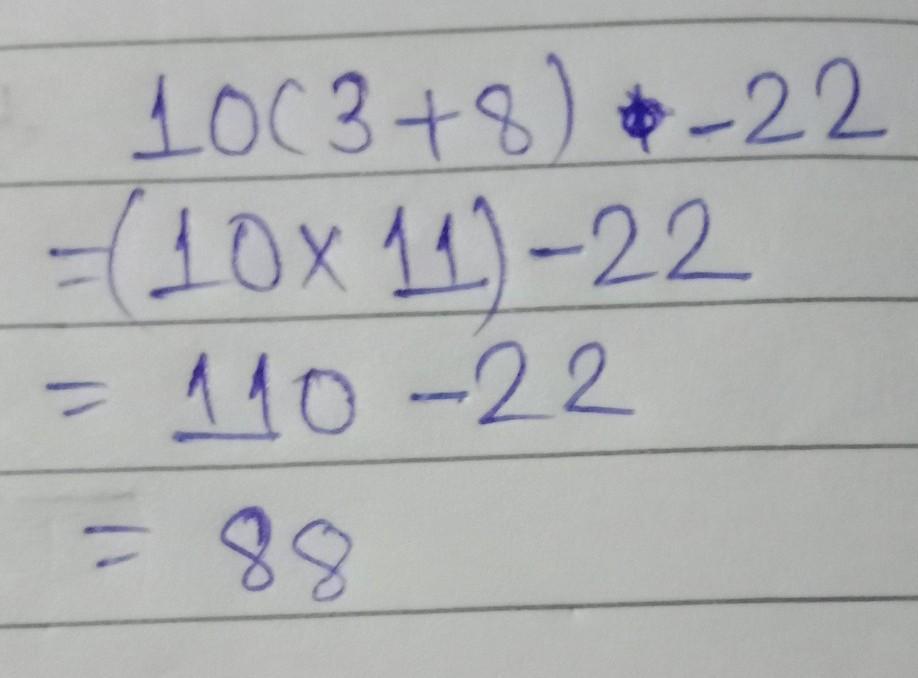 10(3+8) -22
=(10×11)-22
= 110 -22
= 88